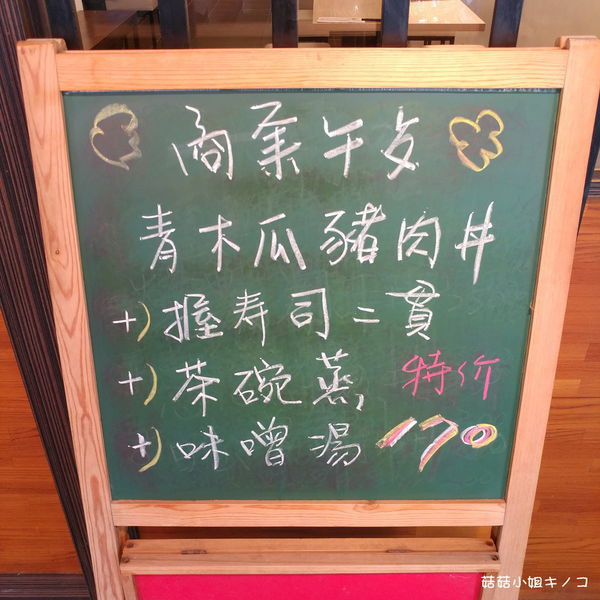 商業午友
青木瓜豬肉丼
+)握寿司二貫
+)茶碗蒸 特价
+)味噌湯 170
菇菇小姐キノコ